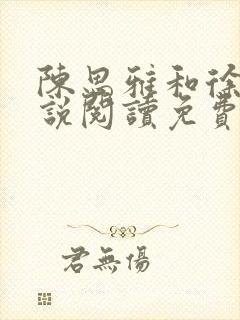 陳思雅和徐
說閱讀免費
君無傷